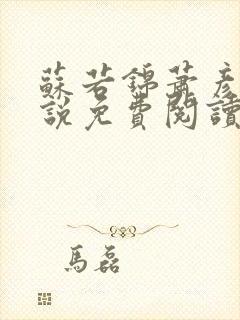 蘇若錦蕭彥
說免費閱讀
馬磊